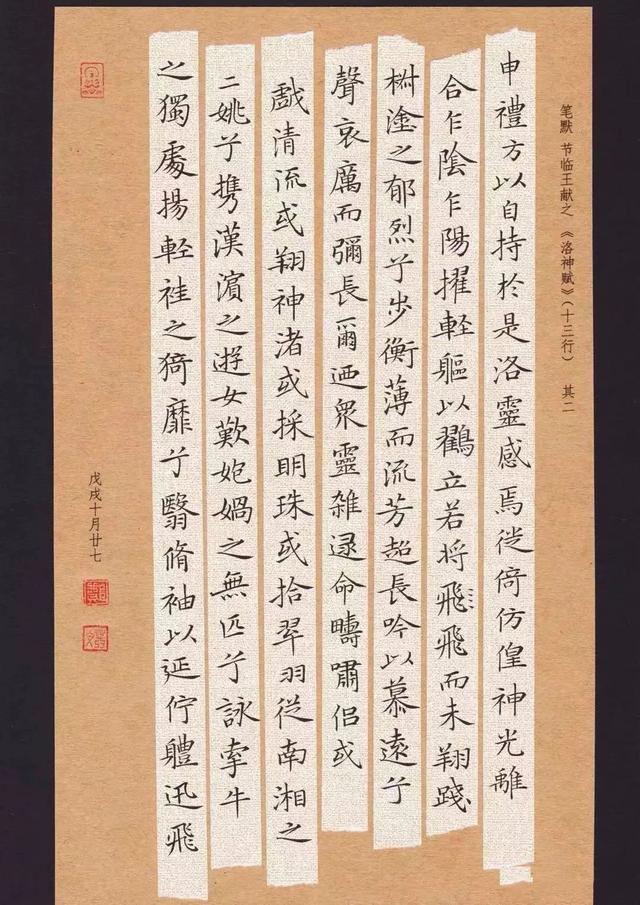 笔默 节临王献之 《洛神赋》（十三行） 其二
申禮方以自持於是洛靈感焉徙倚仿偟神光離
合乍陰乍陽擢輕軀以鸛立若將飛飛而未翔踐
椒塗之郁烈兮步衡薄而流芳超長吟以慕遠兮
聲哀厲而彌長爾迺眾靈雜遝命疇嘯侶或
戲清流或翔神渚或採明珠或拾翠羽從南湘之
二姚兮携漢濱之遊女歎媧之無匹兮詠牽牛
之獨處揚輕袿之猗靡兮翳脩袖以延佇軆迅飛
戊戌十月廿七